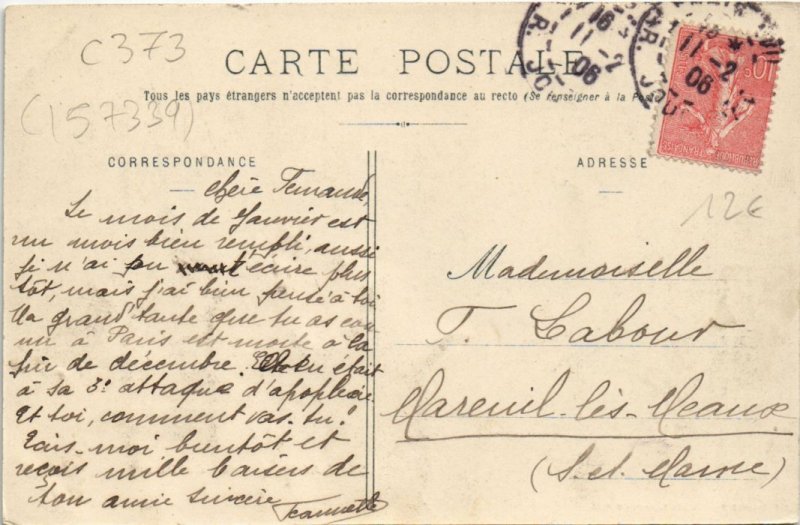 C373
(157339)
CARTE POSTALE
Tous les pays étrangers n'acceptent pas la correspondance au recto (Se renseigner à la
CORRESPONDANCE
Chère Fernande,
Le mois de Janvier est
un mois bien rempli, aussi
je n'ai pu t'écrire plus
tôt, mais j'ai bien pensé à toi
Ma grand tante que tu as con
nue à Paris est morte à la
fin de décembre. en était
à sa 3e attaque d'apoplexie
Et toi, comment vas-tu?
Ecris-moi bientôt et
reçois mille baisers de
ton amie sincère
Jeannette
ADRESSE
Mademoiselle
F. Labour
Mareuil-lès-Meaux
(S. et. Marne)
12€
16
11-2
06
11-2
06
10c